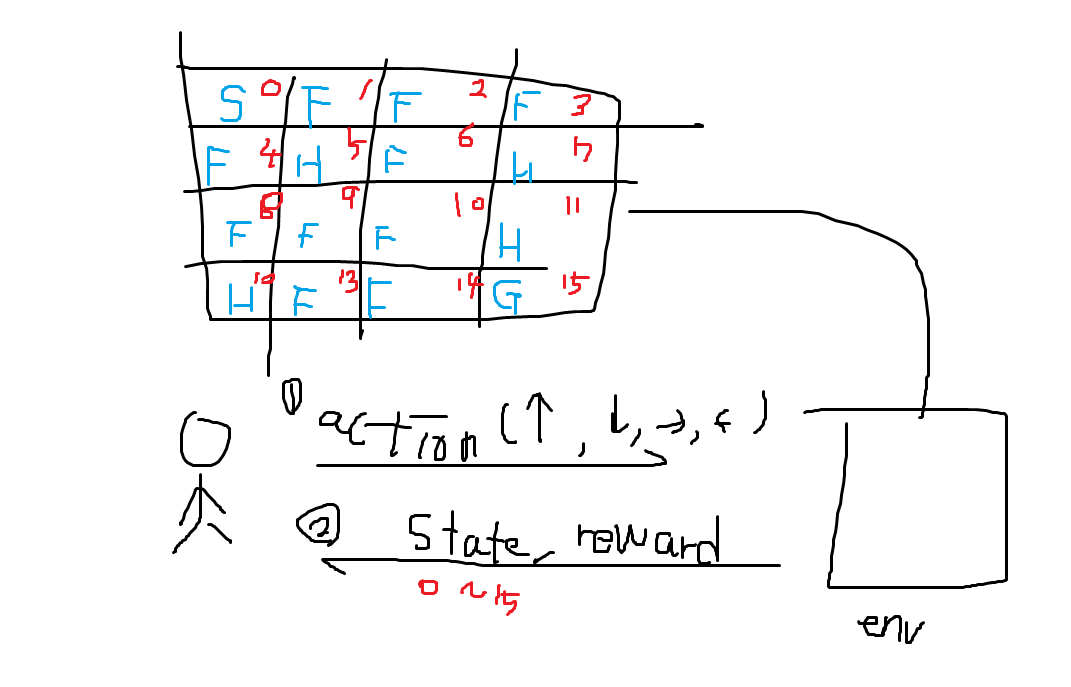 S 0 F 1 F 2 F 3
F 4 H 5 F 6 H 7
F 8 F 9 F 10 H 11
H F 13 F 14 G 15
① action (↑, ↓, →, ←)
② state, reward
0 ~ 15
env